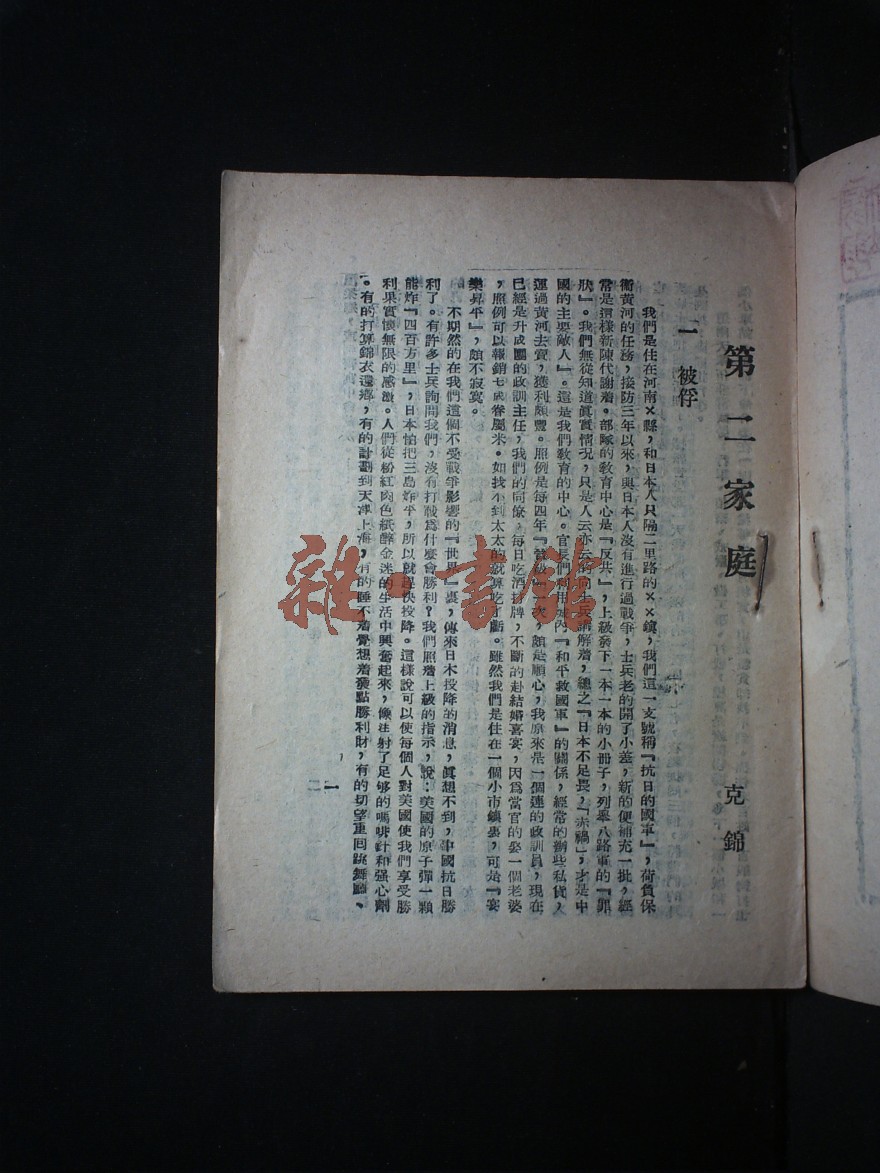 第二家庭
克錦
一 被俘
我們是住在河南×縣，和日本人只隔二里路的××鎮，我們這一支號稱『抗日的國軍』，荷負保
衛黃河的任務，接防三年以來，與日本人沒有進行過戰爭，士兵老的開了小差，新的便補充一批，經
常是這樣新陳代謝着。部隊的教育中心是『反共』，上級發下一本一本的小冊子，列舉八路軍的『罪
狀』。我們無從知道真實情況，只是人云亦云的向士兵講解着，總之『日本不足畏，「赤禍」，才是中
國的主要敵人』。這是我們教育的中心。官長們利用城內『和平救國軍』的關係，經常的辦些私貨，
運過黃河去賣，獲利頗豐。照例是每四年『晉級』一次，頗是順心，我原來是一個連的政訓員，現在
已經是升成團的政訓主任，我們的同僚，每日吃酒打牌，不斷的赴結婚喜宴，因爲當官的娶一個老婆
，照例可以報銷七成眷屬米。如找不到太太的就算吃了虧。雖然我們是住在一個小市鎮裏，可是『宴
樂昇平』，頗不寂寞。
不期然的在我們這個不受戰爭影響的『世界』裏，傳來日本投降的消息，眞想不到，中國抗日勝
利了。有許多士兵詢問我們，沒有打戰爲什麼會勝利？我們照着上級的指示，說：美國的原子彈一顆
能炸『四百方里』，日本怕把三島炸平，所以就趕快投降。這樣說可以使每個人對美國使我們享受勝
利果實懷無限的感激。人們從粉紅肉色紙醉金迷的生活中興奮起來，像注射了足够的嗎啡針和强心劑
一。有的打算錦衣還鄉，有的計劃到天津上海，有的睡不着覺想着發點勝利財，有的切望重回跳舞廳、
二一
雜書館